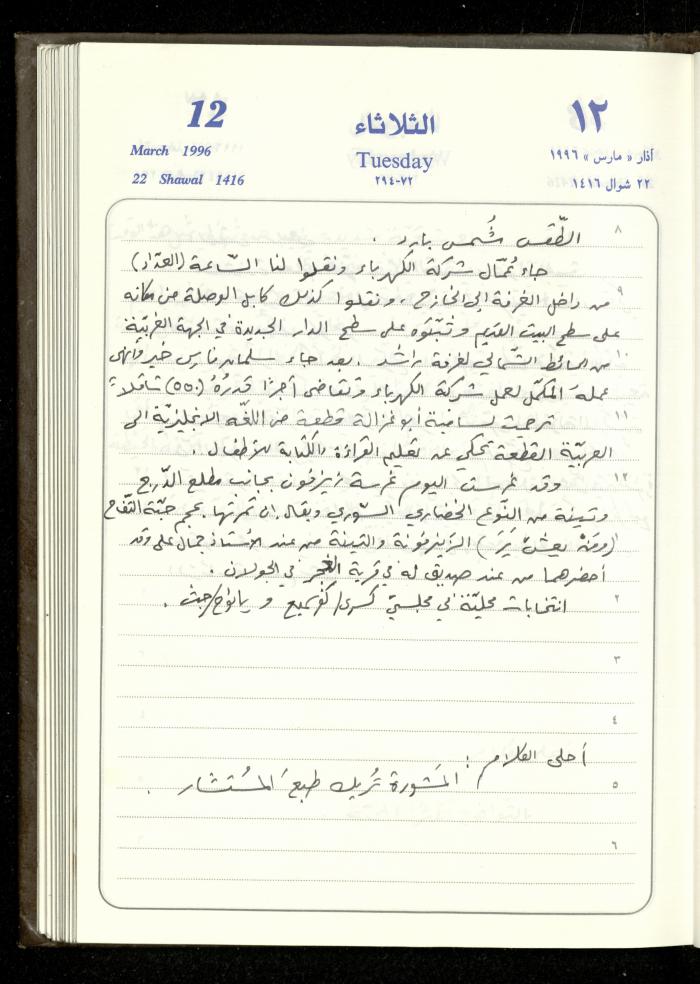 12
March 1996
22 Shawal 1416
الثلاثاء
Tuesday
٧٢-٢٩٤
١٢
آذار « مارس » ١٩٩٦
٢٢ شوال ١٤١٦
٨
الطّقس مُشمس بارد .
جاء عُمّال شركة الكهرباء ونقلوا لنا السّاعة (العدّاد)
٩
من داخل الغرفة الى الخارج ، ونقلوا كذلك كابل الوصلة من مكانه
على سطح البيت القديم وثبّتوه على سطح الدار الجديدة في الجهة الغربيّة
١٠
من الحائط الشّمالي لغرفة راشد . بعد جاء سلمان فارس خير وأنهى
عمله المكمّل لعمل شركة الكهرباء وتقاضى أجرًا قدرُهُ (٥٥٠) شاقلاً
١١
ترجمت لسانية أبو غزالة قطعة من اللغه الانجليزيّة الى
العربيّة القطعة تحكي عن تعليم القراءة والكتابة للأطفال .
١٢
وقد غرست اليوم غرسة زيزفون بجانب مطلع الدّرج
وتينة من النّوع الخضاري السّوري ويقال ان ثمرتها بحجم حبّة التّفاح
(ومَنْ يعِشْ يَرَ) الزّيزفونة والتينة من عند الأستاذ جمال علي وقد
أحضرهما من عند صديق له في قرية الغجر في الجولان .
٢
انتخابات محليّة في مجلسيّ كسرى/كفرسميع و يانوح/جث .
٣
٤
أحلى الكلام :
المَشورة تُريك طبعَ المُستشار .
٥
٦